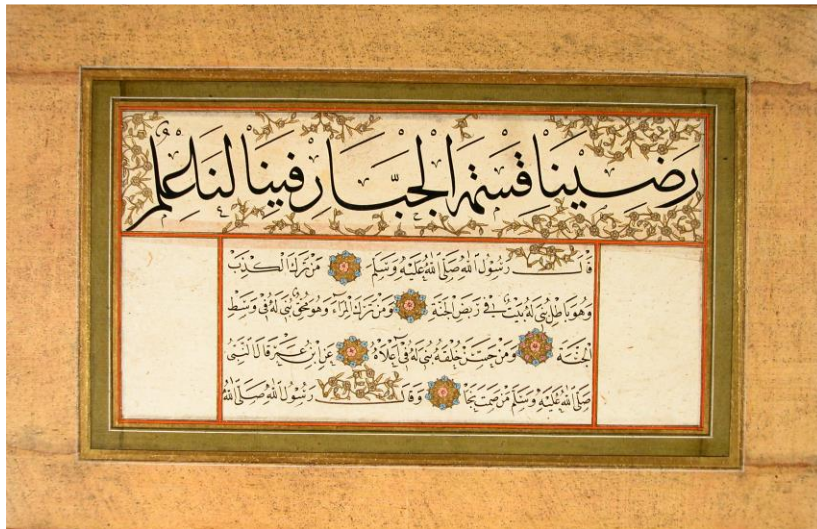 رَضِينَا قِسْمَةَ الْجَبَّارِ فِينَا لَنَا عِلْمٌ
قَالَ رَسُولُ اللهِ صَلَّى اللهُ عَلَيْهِ وَسَلَّمَ مَنْ تَرَكَ الْكَذِبَ
وَهُوَ بَاطِلٌ بُنِيَ لَهُ بَيْتٌ فِي رَبَضِ الْجَنَّةِ وَمَنْ تَرَكَ الْمِرَاءَ وَهُوَ مُحِقٌّ بُنِيَ لَهُ فِي وَسَطِ
الْجَنَّةِ وَمَنْ حَسَّنَ خُلُقَهُ بُنِيَ لَهُ فِي أَعْلَاهُ عَنِ ابْنِ عُمَرَ قَالَ النَّبِيُّ
صَلَّى اللهُ عَلَيْهِ وَسَلَّمَ مَنْ صَمَتَ نَجَا وَقَالَ رَسُولُ اللهِ صَلَّى اللهُ